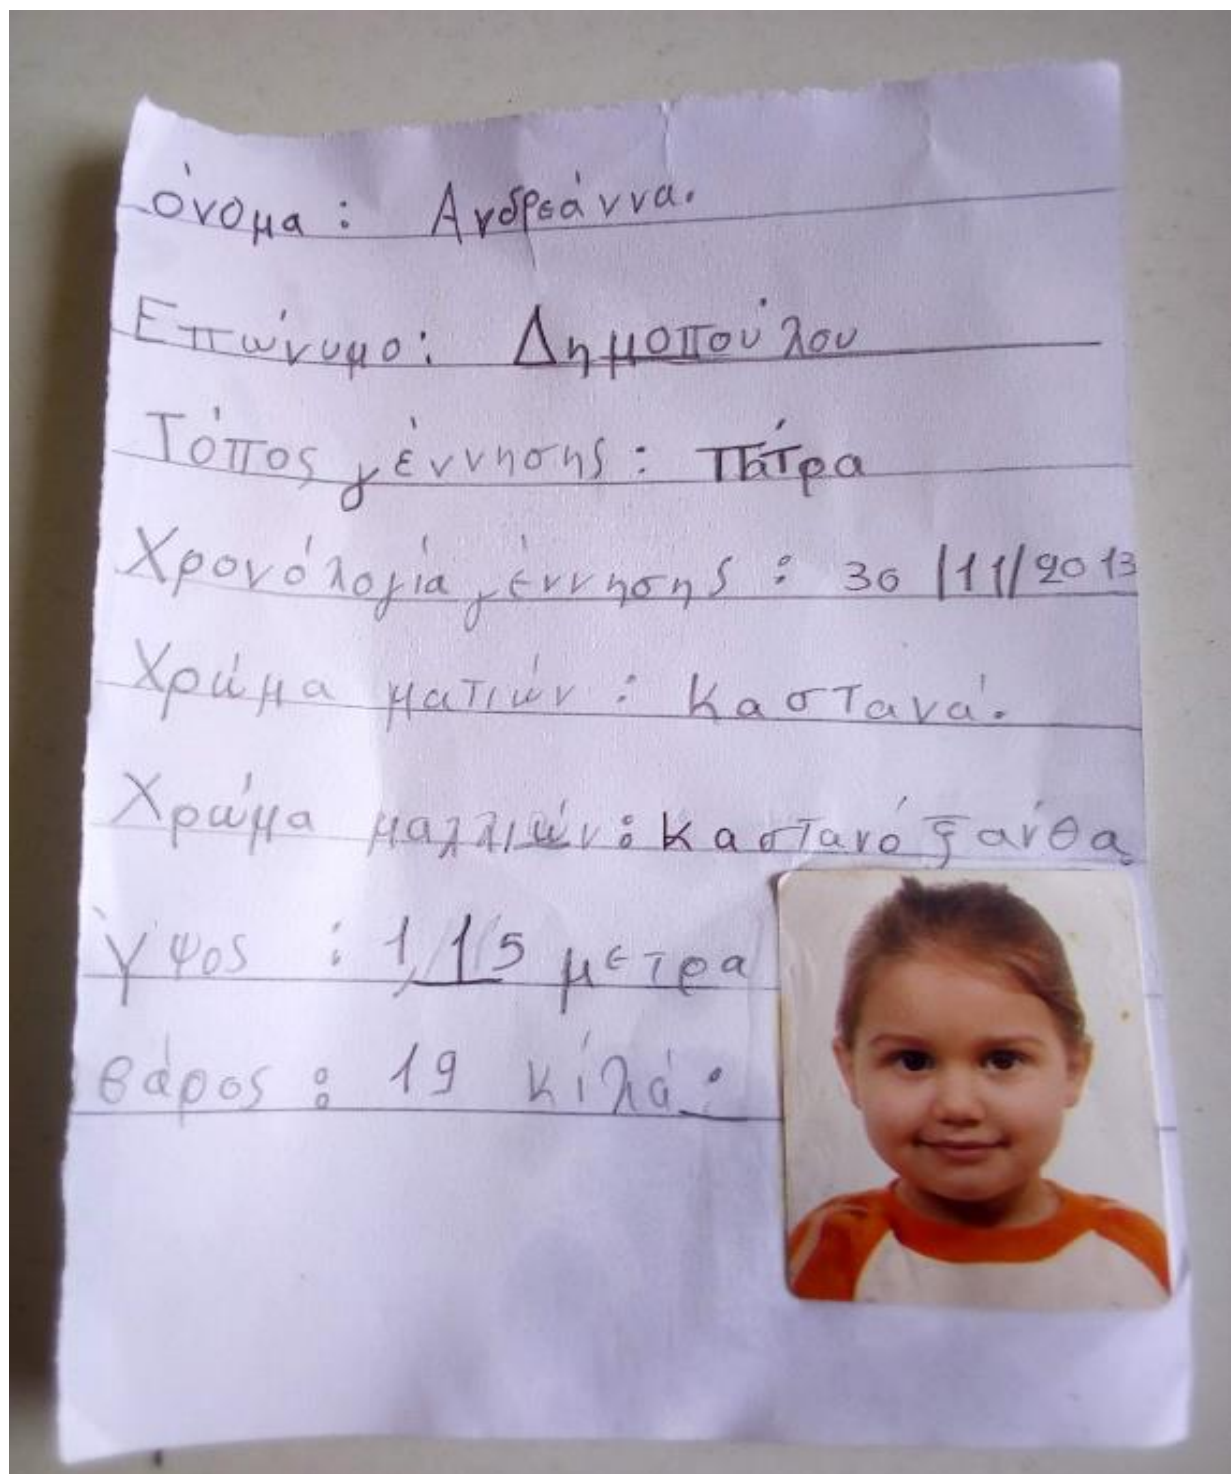 όνομα : Ανδρεάννα.
Επώνυμο: Δημοπούλου
Τόπος γέννησης : Πάτρα
Χρονόλογία γέννησης : 30/11/2013
Χρώμα ματιών : καστανά.
Χρώμα μαλλιών : καστανόξανθα
Ύψος : 1,15 μετρα
βάρος : 19 κίλά.